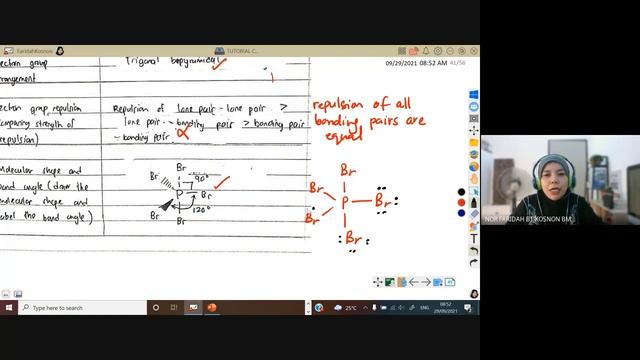 FaridahKosnon
TUTORIAL C...
09/29/2021 08:52 AM 41/56
ectron group
Trigonal bipyramidal
rrangement
ectron group repulsion
Repulsion of lone pair - lone pair >
omparing strength of
lone pair - bonding pair > bonding pair
repulsion)
- bonding pair
repulsion of all
bonding pairs are
equal
olecular shape and
Br
Br
90°
P
Br
120°
Br
Br
ond angle (draw the
molecular shape and
label the bond angle)
Br
Br
P
Br
Br
Br
NOR FARIDAH BT KOSNON BM
Type here to search
25°C
ENG
08:52
29/09/2021